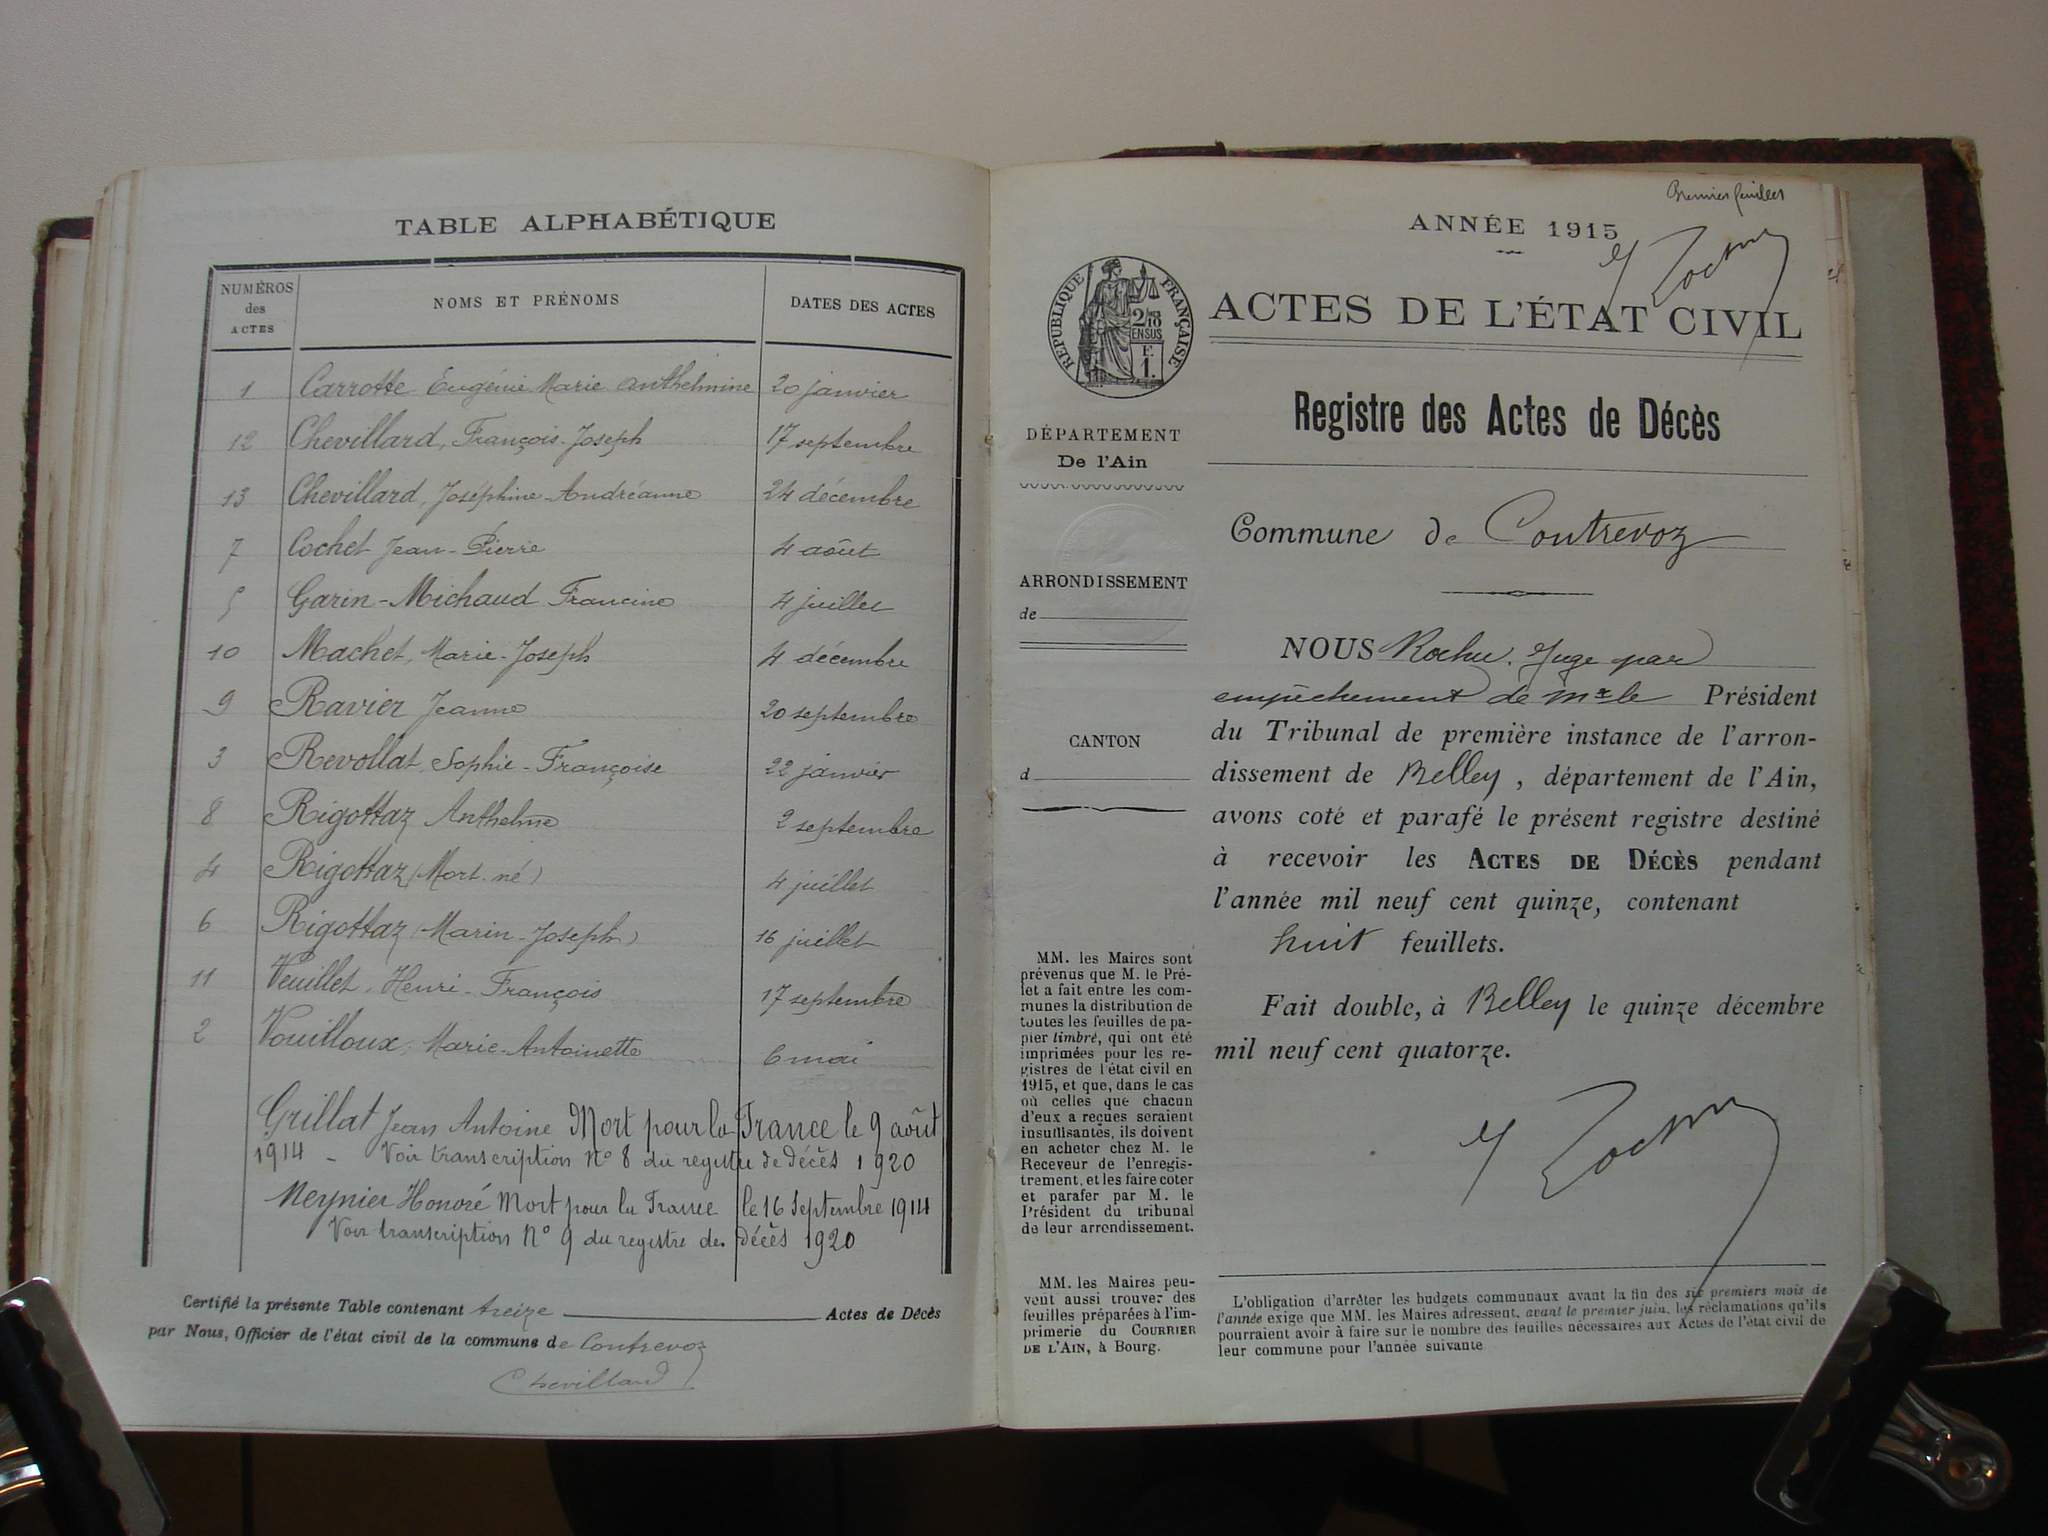 TABLE ALPHABÉTIQUE
NUMÉROS des ACTES NOMS ET PRÉNOMS DATES DES ACTES
1 Carrotte Eugénie Marie Anthelmine 20 janvier
12 Chevillard, François-Joseph 17 septembre
13 Chevillard, Joséphine-Andréanne 24 décembre
7 Cochet Jean-Pierre 4 août
5 Garin-Michaud Francine 4 juillet
10 Machet, Marie-Joseph 4 décembre
9 Ravier Jeanne 20 septembre
3 Revollat, Sophie-Françoise 22 janvier
8 Rigottaz Anthelme 2 septembre
4 Rigottaz (Mort-né) 4 juillet
6 Rigottaz (Marin-Joseph) 16 juillet
11 Veuillet, Henri-François 17 septembre
2 Vouilloux, Marie-Antoinette 6 mai
Grillat Jean Antoine Mort pour la France le 9 août
1914 - Voir transcription N° 8 du registre de décès 1920
Meynier Honoré Mort pour la France le 16 Septembre 1914
Voir transcription N° 9 du registre des décès 1920
Certifié la présente Table contenant treize Actes de Décès
par Nous, Officier de l'état civil de la commune de Contrevoz
Chevillard
ANNÉE 1915
RÉPUBLIQUE FRANÇAISE
2/10
EN SUS
F.
1.
ACTES DE L'ÉTAT CIVIL
Registre des Actes de Décès
DÉPARTEMENT
De l'Ain
Commune de Contrevoz
ARRONDISSEMENT
de
CANTON
d
NOUS Rochu, Juge par
empêchement de Mr le Président
du Tribunal de première instance de l'arron-
dissement de Belley, département de l'Ain,
avons coté et parafé le présent registre destiné
à recevoir les ACTES DE DÉCÈS pendant
l'année mil neuf cent quinze, contenant
huit feuillets.
Fait double, à Belley le quinze décembre
mil neuf cent quatorze.
MM. les Maires sont
prévenus que M. le Pré-
fet a fait entre les com-
munes la distribution de
toutes les feuilles de pa-
pier timbré, qui ont été
imprimées pour les re-
gistres de l'état civil en
1915, et que, dans le cas
où celles que chacun
d'eux a reçues seraient
insuffisantes, ils doivent
en acheter chez M. le
Receveur de l'enregis-
trement, et les faire coter
et parafer par M. le
Président du tribunal
de leur arrondissement.
MM. les Maires peu-
vent aussi trouver des
feuilles préparées à l'im-
primerie du COURRIER
DE L'AIN, à Bourg.
L'obligation d'arrêter les budgets communaux avant la fin des six premiers mois de
l'année exige que MM. les Maires adressent, avant le premier juin, les réclamations qu'ils
pourraient avoir à faire sur le nombre des feuilles nécessaires aux Actes de l'état civil de
leur commune pour l'année suivante